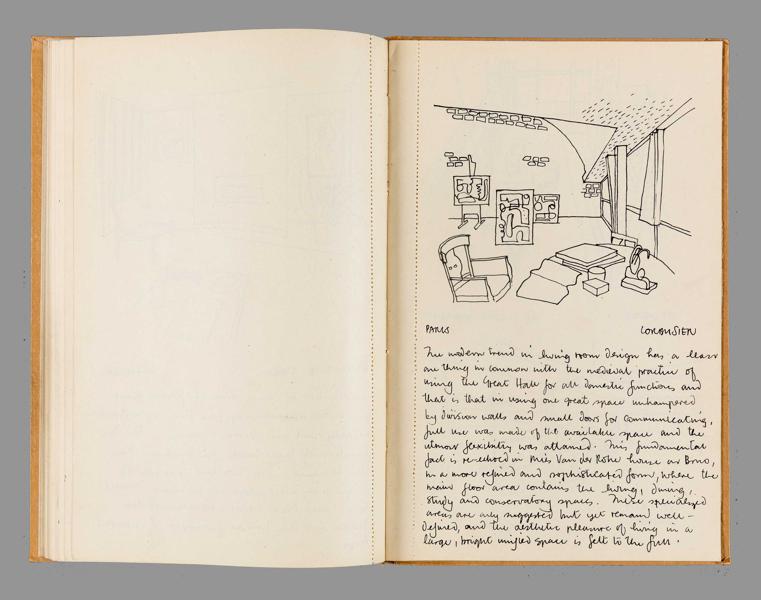 PARIS
CORBUSIER
The modern trend in living room design has a least
one thing in common with the medieval practice of
using the Great Hall for all domestic functions and
that is that in using one great space unhampered
by division walls and small doors for communicating,
full use was made of the available space and the
utmost flexibility was attained. This fundamental
fact is re-echoed in Mies Van der Rohe house at Brno,
in a more refined and sophisticated form, where the
main floor area contains the living, dining,
study and conservatory spaces. These specialized
areas are only suggested but yet remain well-
defined, and the aesthetic pleasure of living in a
large, bright unified space is felt to the full.